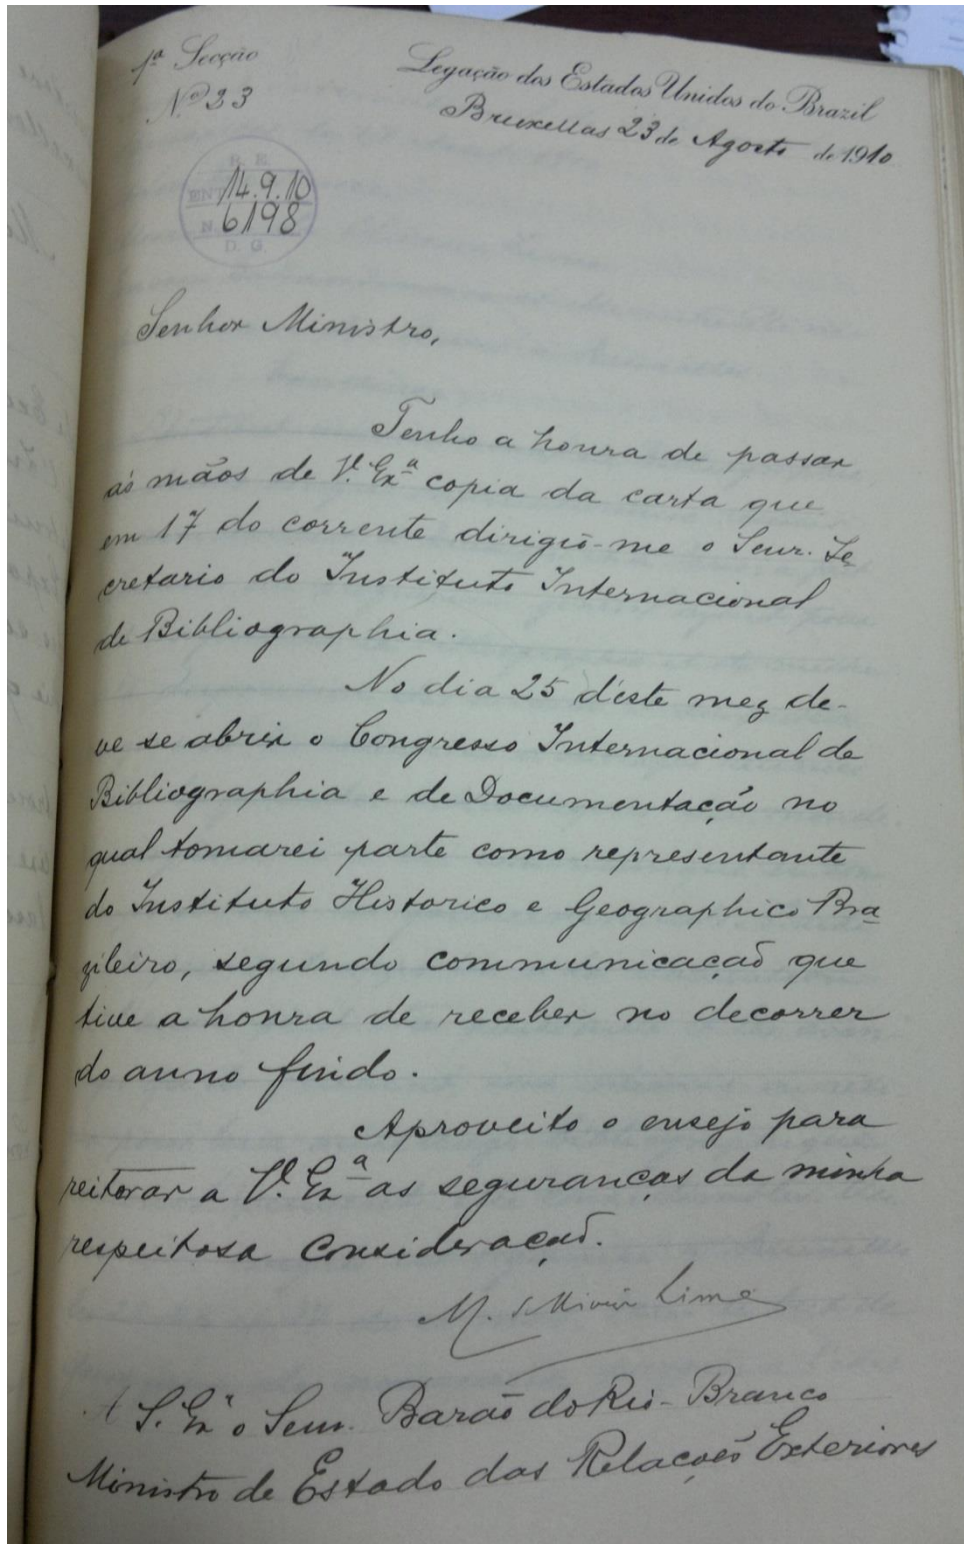 1ª Secção
Nº 33
Legação dos Estados Unidos do Brazil
Bruxellas 23 de Agosto de 1910
R. E.
ENT 14.9.10
N. 6198
D. G.
Senhor Ministro,
Tenho a honra de passar
ás mãos de V. Exª copia da carta que
em 17 do corrente dirigio-me o Senr. Se
cretario do Instituto Internacional
de Bibliographia.
No dia 25 d'este mez de-
ve se abrir o Congresso Internacional de
Bibliographia e de Documentação no
qual tomarei parte como representante
do Instituto Historico e Geographico Bra
zileiro, segundo communicação que
tive a honra de receber no decorrer
do anno findo.
Aproveito o ensejo para
reiterar a V. Exª as seguranças da minha
respeitosa consideração.
M. Lima
A S. Exª o Senr. Barão do Rio-Branco
Ministro de Estado das Relações Exteriores